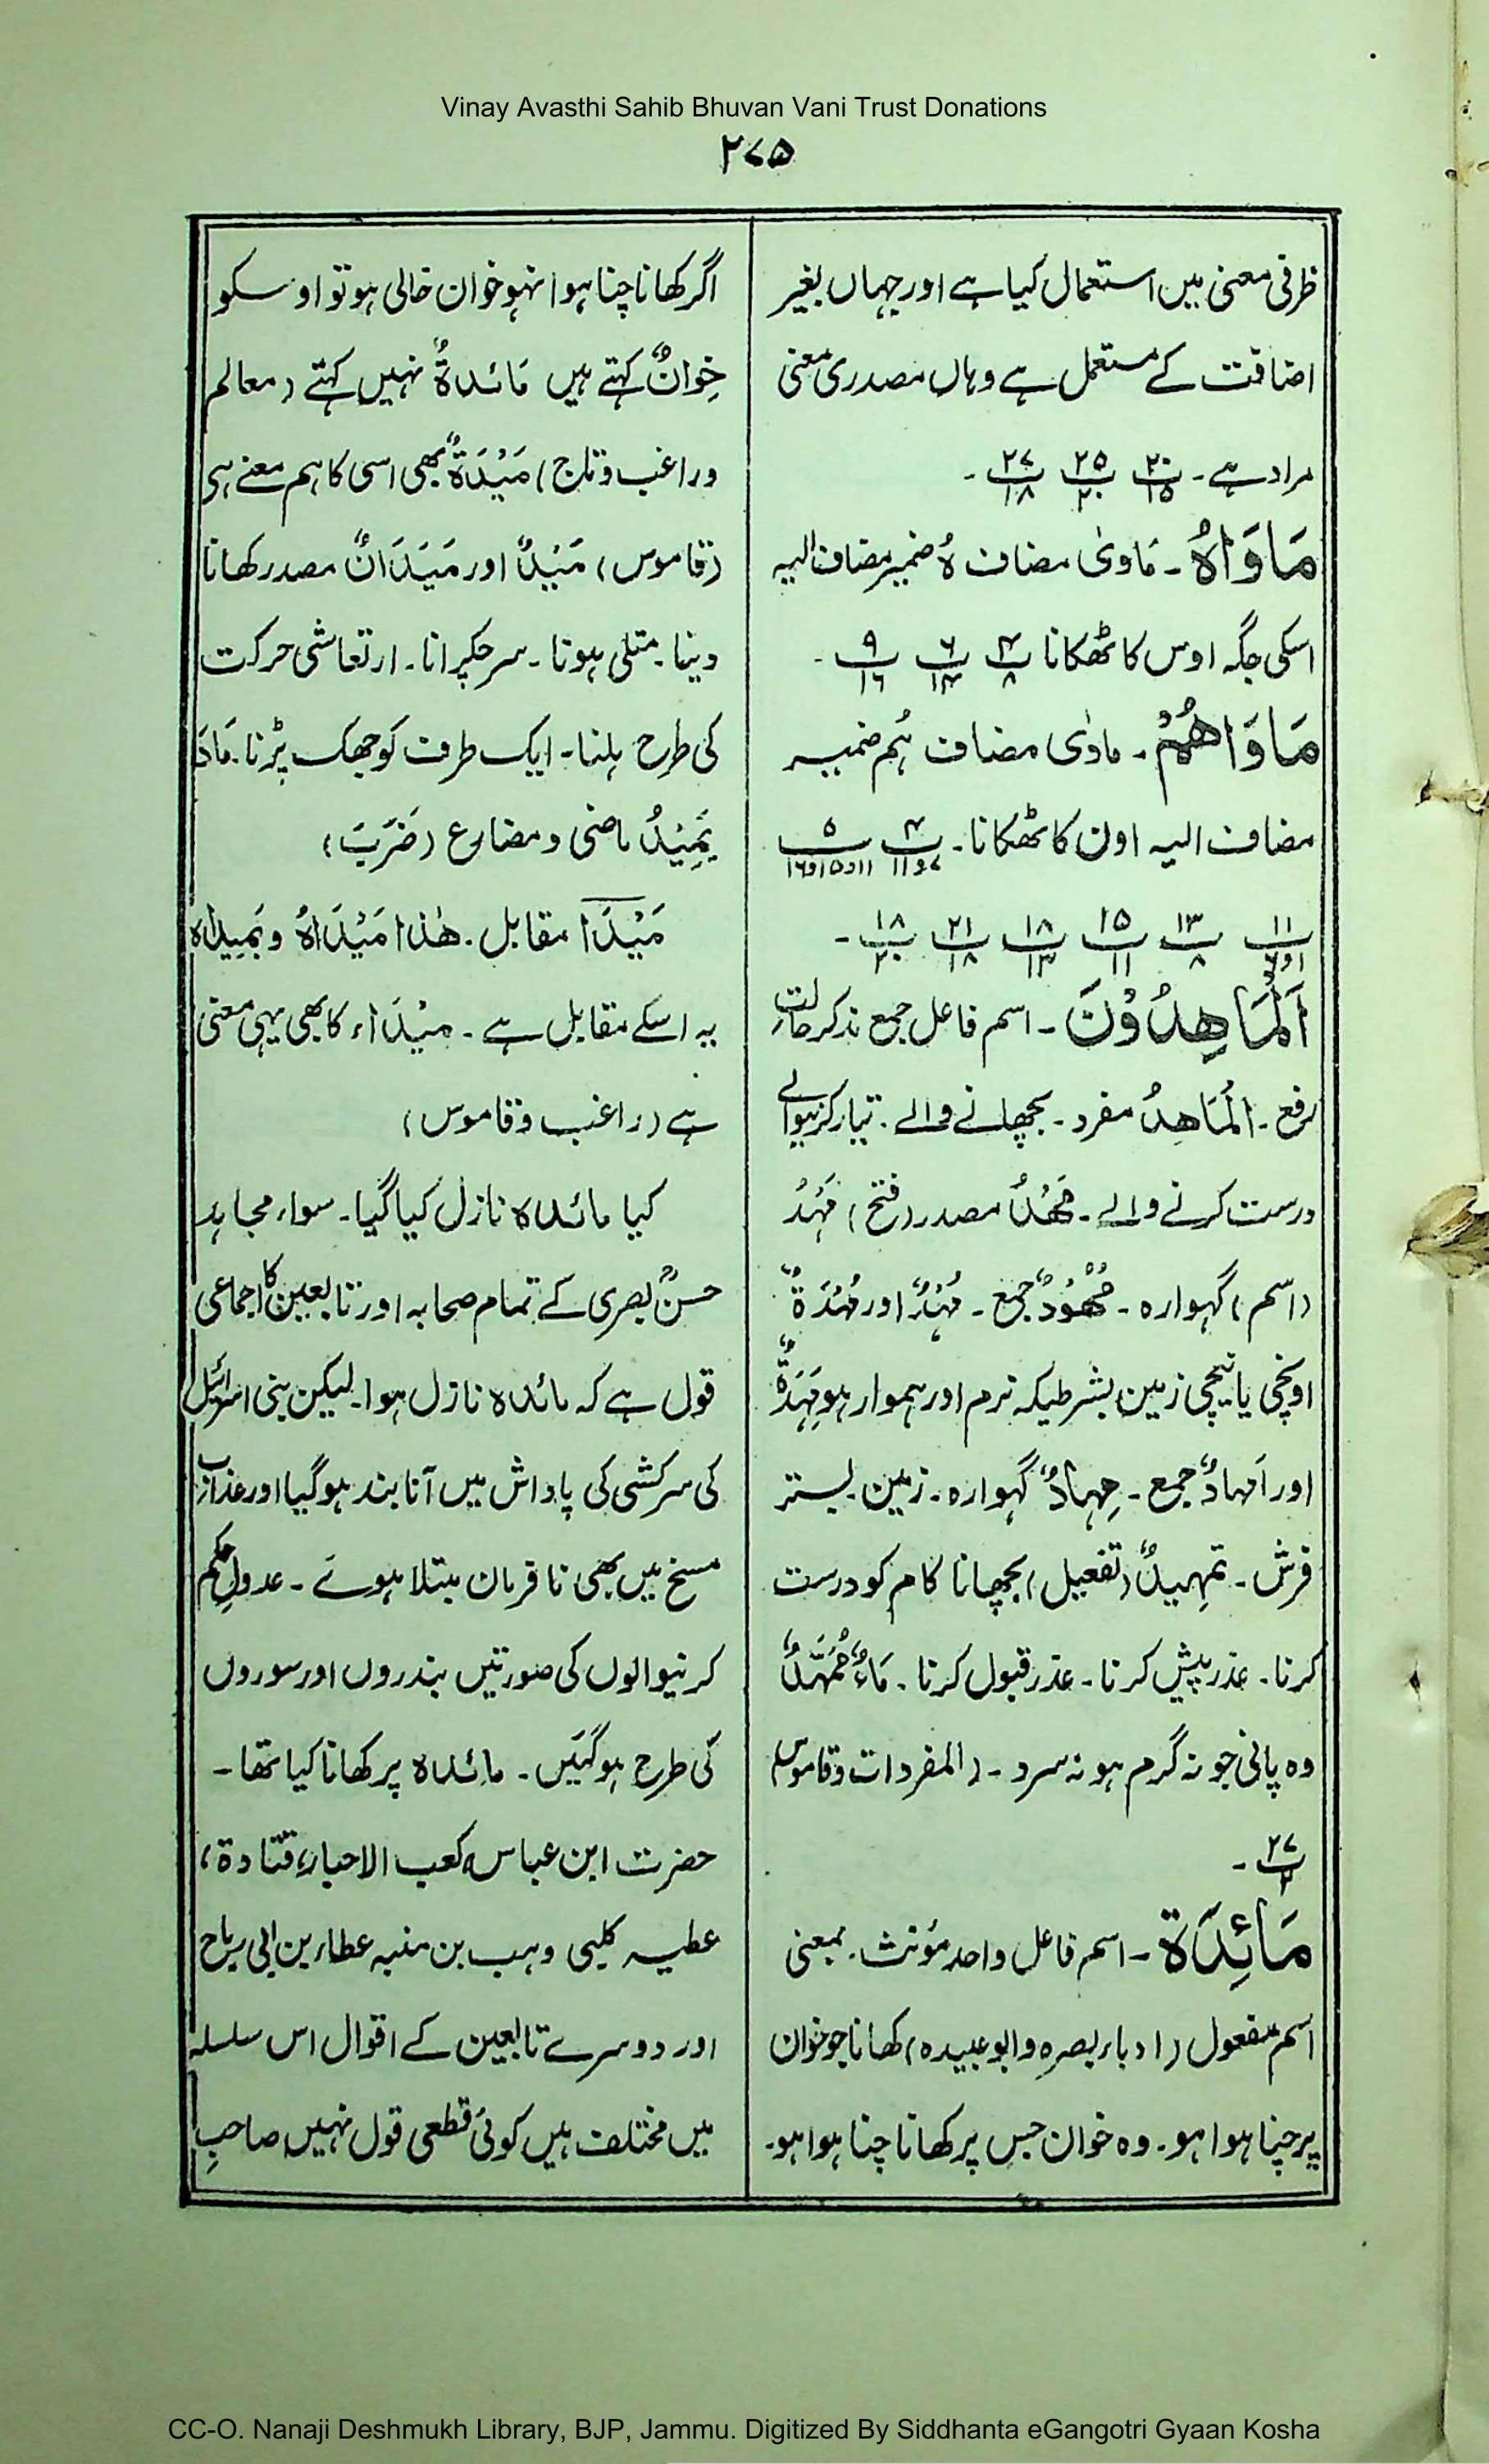 Vinay Avasthi Sahib Bhuvan Vani Trust Donations
۲۷۵
ظرفی معنی میں استعمال کیا ہے اور جہاں بغیر
اضافت کے مستعمل ہے وہاں مصدری معنی
مراد ہے۔ ۲۰/۱۵ ۲۵/۲۰ ۲۷/۱۸ ۔
مَاوَاہُ۔ مَاوٰی مضاف ہُ ضمیر مضاف الیہ
اسکی جگہ اوس کا ٹھکانا ۴/۸ ۶/۱۴ ۹/۱۶ ۔
مَاوَاھُمْ۔ ماوٰی مضاف ہُم ضمیر
مضاف الیہ اون کا ٹھکانا۔ ۴/۷و۱۱ ۵/۱۱و۱۵و۱۶
۱۱/۱و۶ ۱۳/۸ ۱۵/۱۱ ۱۸/۱۳ ۲۱/۱۸ ۱۸/۲۰ ۔
اَلْمَاھِدُوْنَ۔ اسم فاعل جمع مذکر حالت
رفع۔ الْمَاھِدُ مفرد۔ بچھانے والے۔ تیار کرنیوالے
درست کرنے والے۔ مَھْدٌ مصدر (فتح) مَہْدٌ
(اسم) گہوارہ۔ مُھُوْدٌ جمع۔ مُہْدٌ اور مُہْدَةٌ
اونچی یا نیچی زمین بشرطیکہ نرم اور ہموار ہو مِہَدَةٌ
اور اَمہادٌ جمع۔ مِہادٌ گہوارہ۔ زمین۔ بستر
فرش۔ تمہیدٌ (تفعیل) بچھانا کام کو درست
کرنا۔ عذر پیش کرنا۔ عذر قبول کرنا۔ مَاءٌ مُمَہَّدٌ
وہ پانی جو نہ گرم ہو نہ سرد۔ (المفردات و قاموس)
۲۷/۲ ۔
مَائِدَۃ۔ اسم فاعل واحد مؤنث۔ بمعنی
اسم مفعول (ادباء بصرہ و ابوعبیدہ) کھانا جو خوان
پر چنا ہوا ہو۔ وہ خوان جس پر کھانا چنا ہوا ہو۔
اگر کھانا چنا ہوا نہو خوان خالی ہو تو اوسکو
خِوانٌ کہتے ہیں مَائدۃٌ نہیں کہتے (معالم
وراغب و تاج) مَیْدَۃٌ بھی اسی کا ہم معنے ہی
(قاموس) مَیْدٌ اور مَیَدَانٌ مصدر کھانا
دینا۔ متلی ہونا۔ سر چکرانا۔ ارتعاشی حرکت
کی طرح ہلنا۔ ایک طرف کو جھک پڑنا۔ مَادَ
یَمِیْدُ ماضی و مضارع (ضَرَبَ)
مَیْدَا مقابل۔ ھٰذا مَیْدَاہُ وبَمِیداہ
یہ اسکے مقابل ہے۔ میْدَاء کا بھی یہی معنی
ہے (راغب و قاموس)
کیا مائدہ نازل کیا گیا۔ سواء مجاہد
حسنؒ بصری کے تمام صحابہ اور تابعین کا اجماعی
قول ہے کہ مائدہ نازل ہوا۔ لیکن بنی اسرائیل
کی سرکشی کی پاداش میں آنا بند ہوگیا اور عذاب
مسخ میں بھی نافرمان مبتلا ہوے۔ عدول حکم
کرنیوالوں کی صورتیں بندروں اور سوروں
کی طرح ہوگئیں۔ مائدہ پر کھانا کیا تھا۔
حضرت ابن عباس، کعب الاحبار، قتادۃ،
عطیہ کلبی وہب بن منبہ عطاء بن ابی رباح
اور دوسرے تابعین کے اقوال اس سلسلہ
میں مختلف ہیں کوئی قطعی قول نہیں صاحبِ
CC-O. Nanaji Deshmukh Library, BJP, Jammu. Digitized By Siddhanta eGangotri Gyaan Kosha